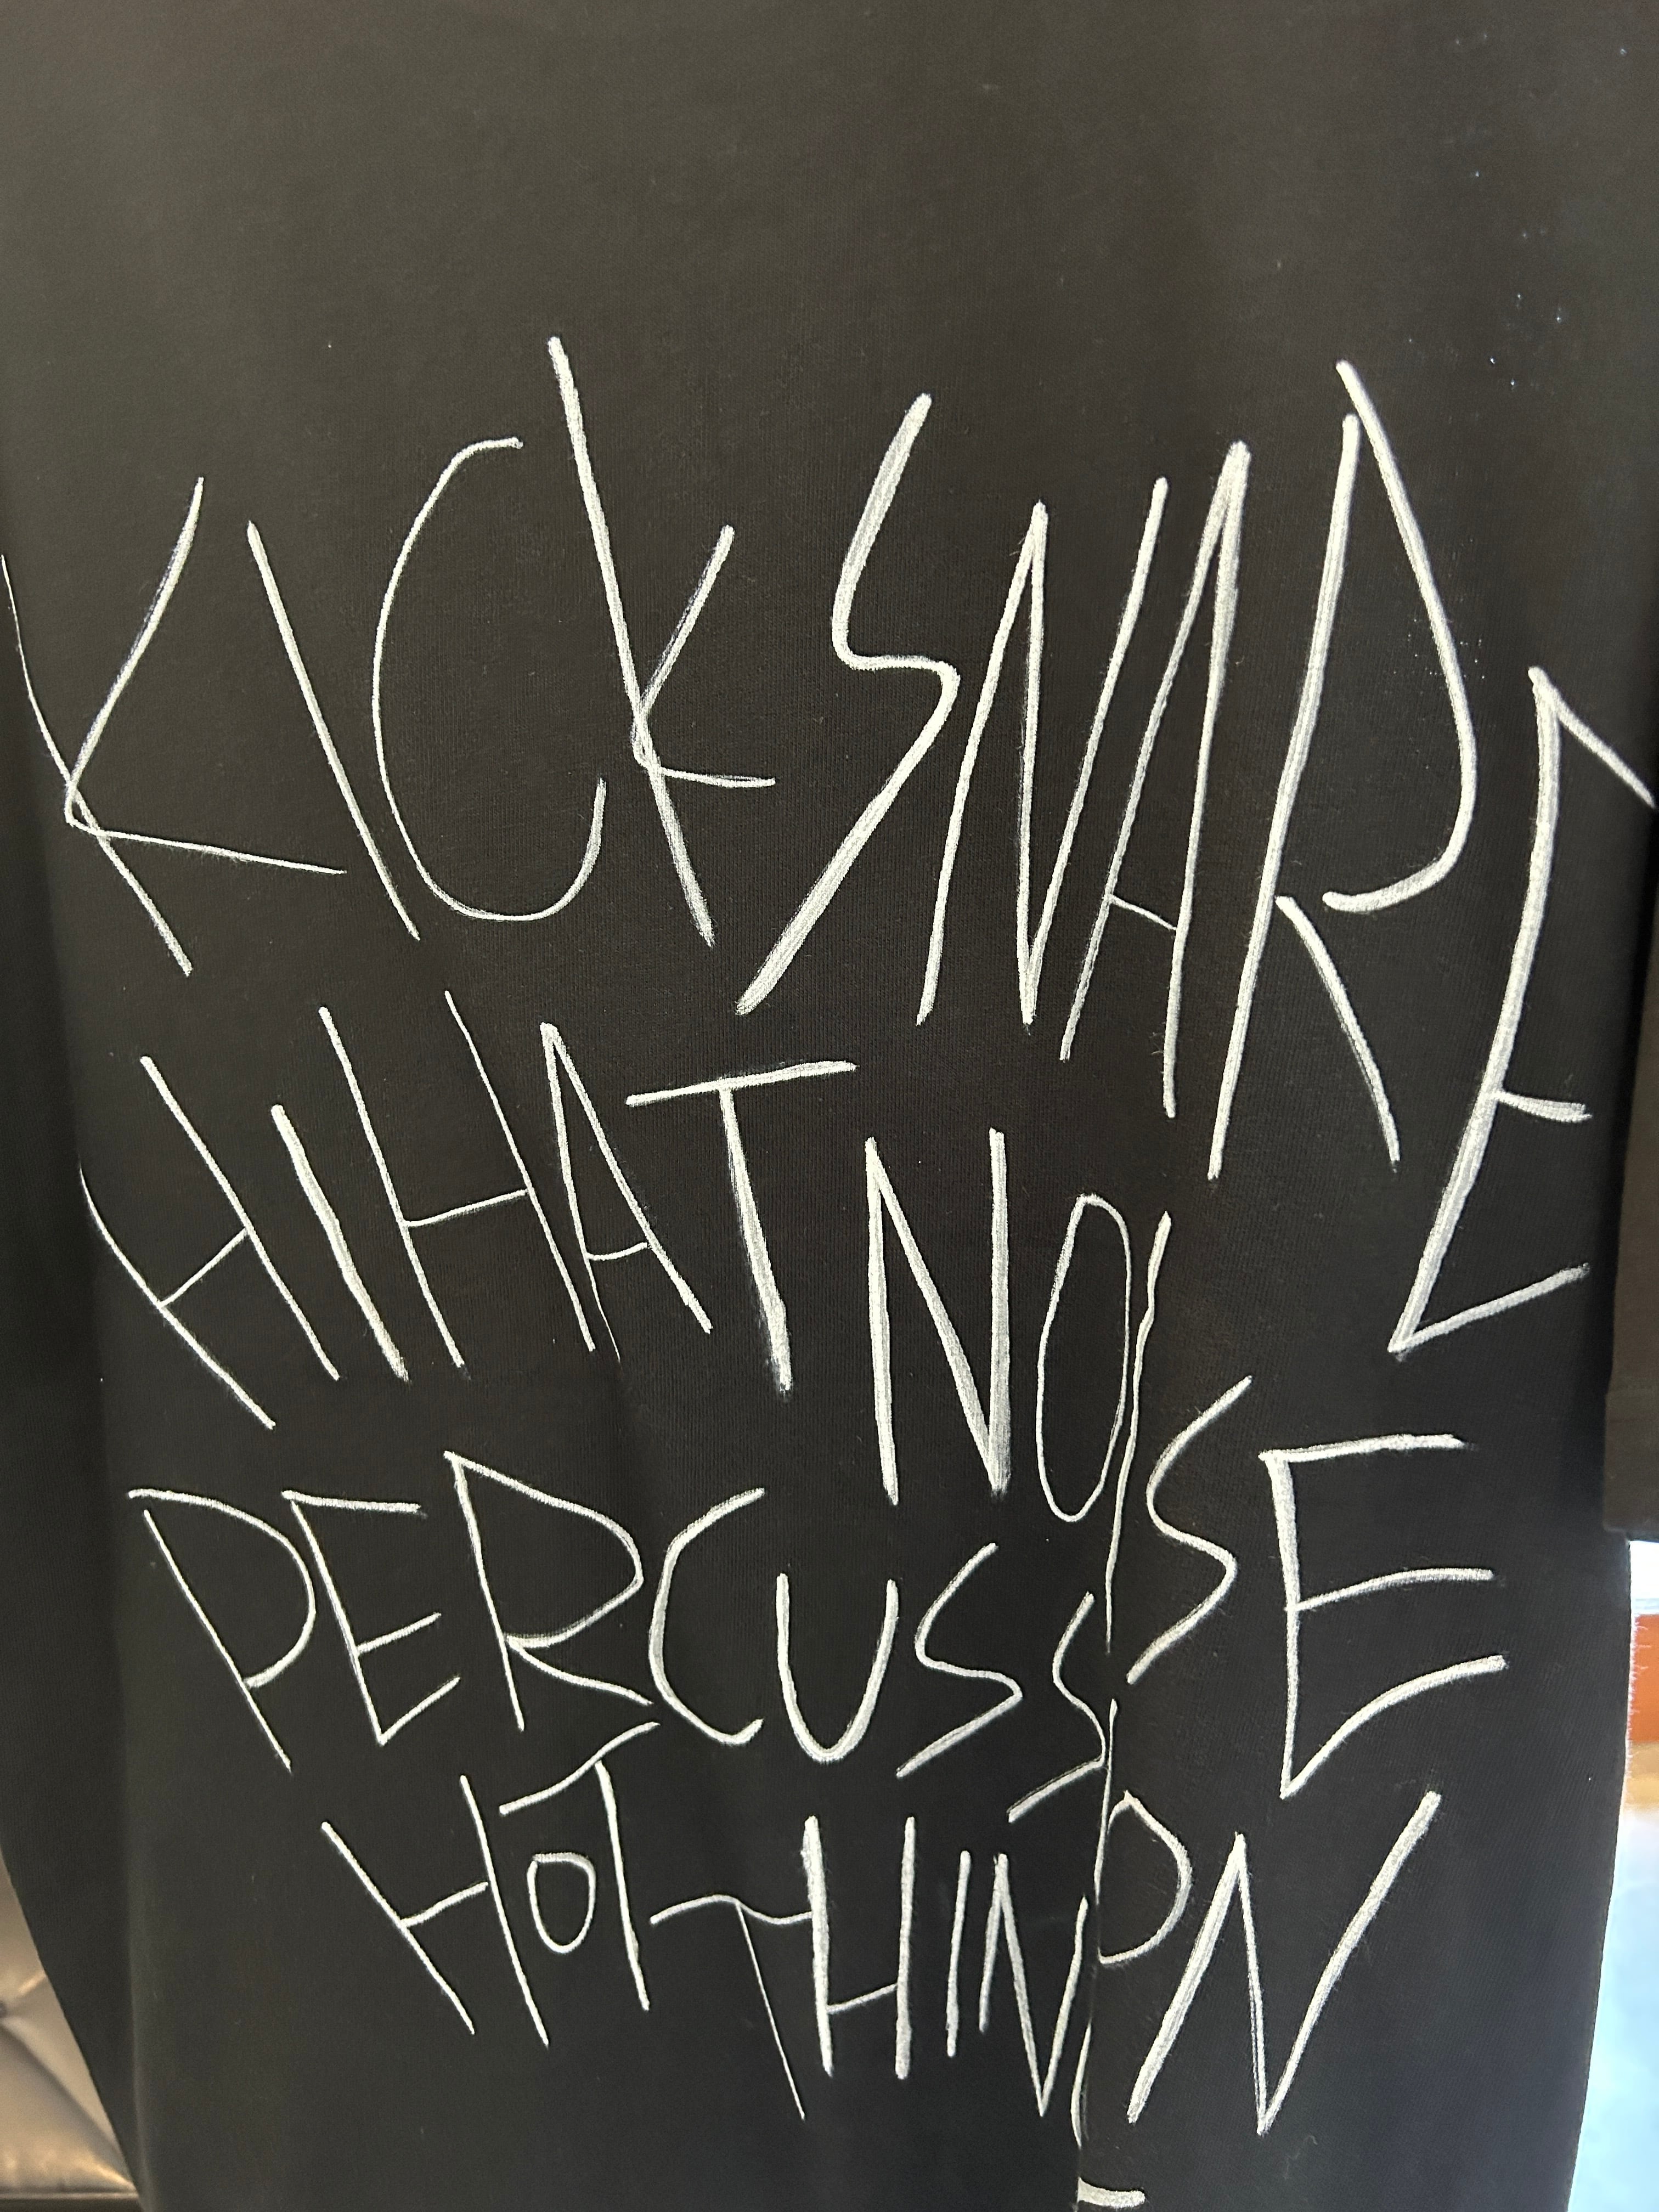 KICK SNARE
HIHAT NOISE
PERCUSSION
HOT THIN